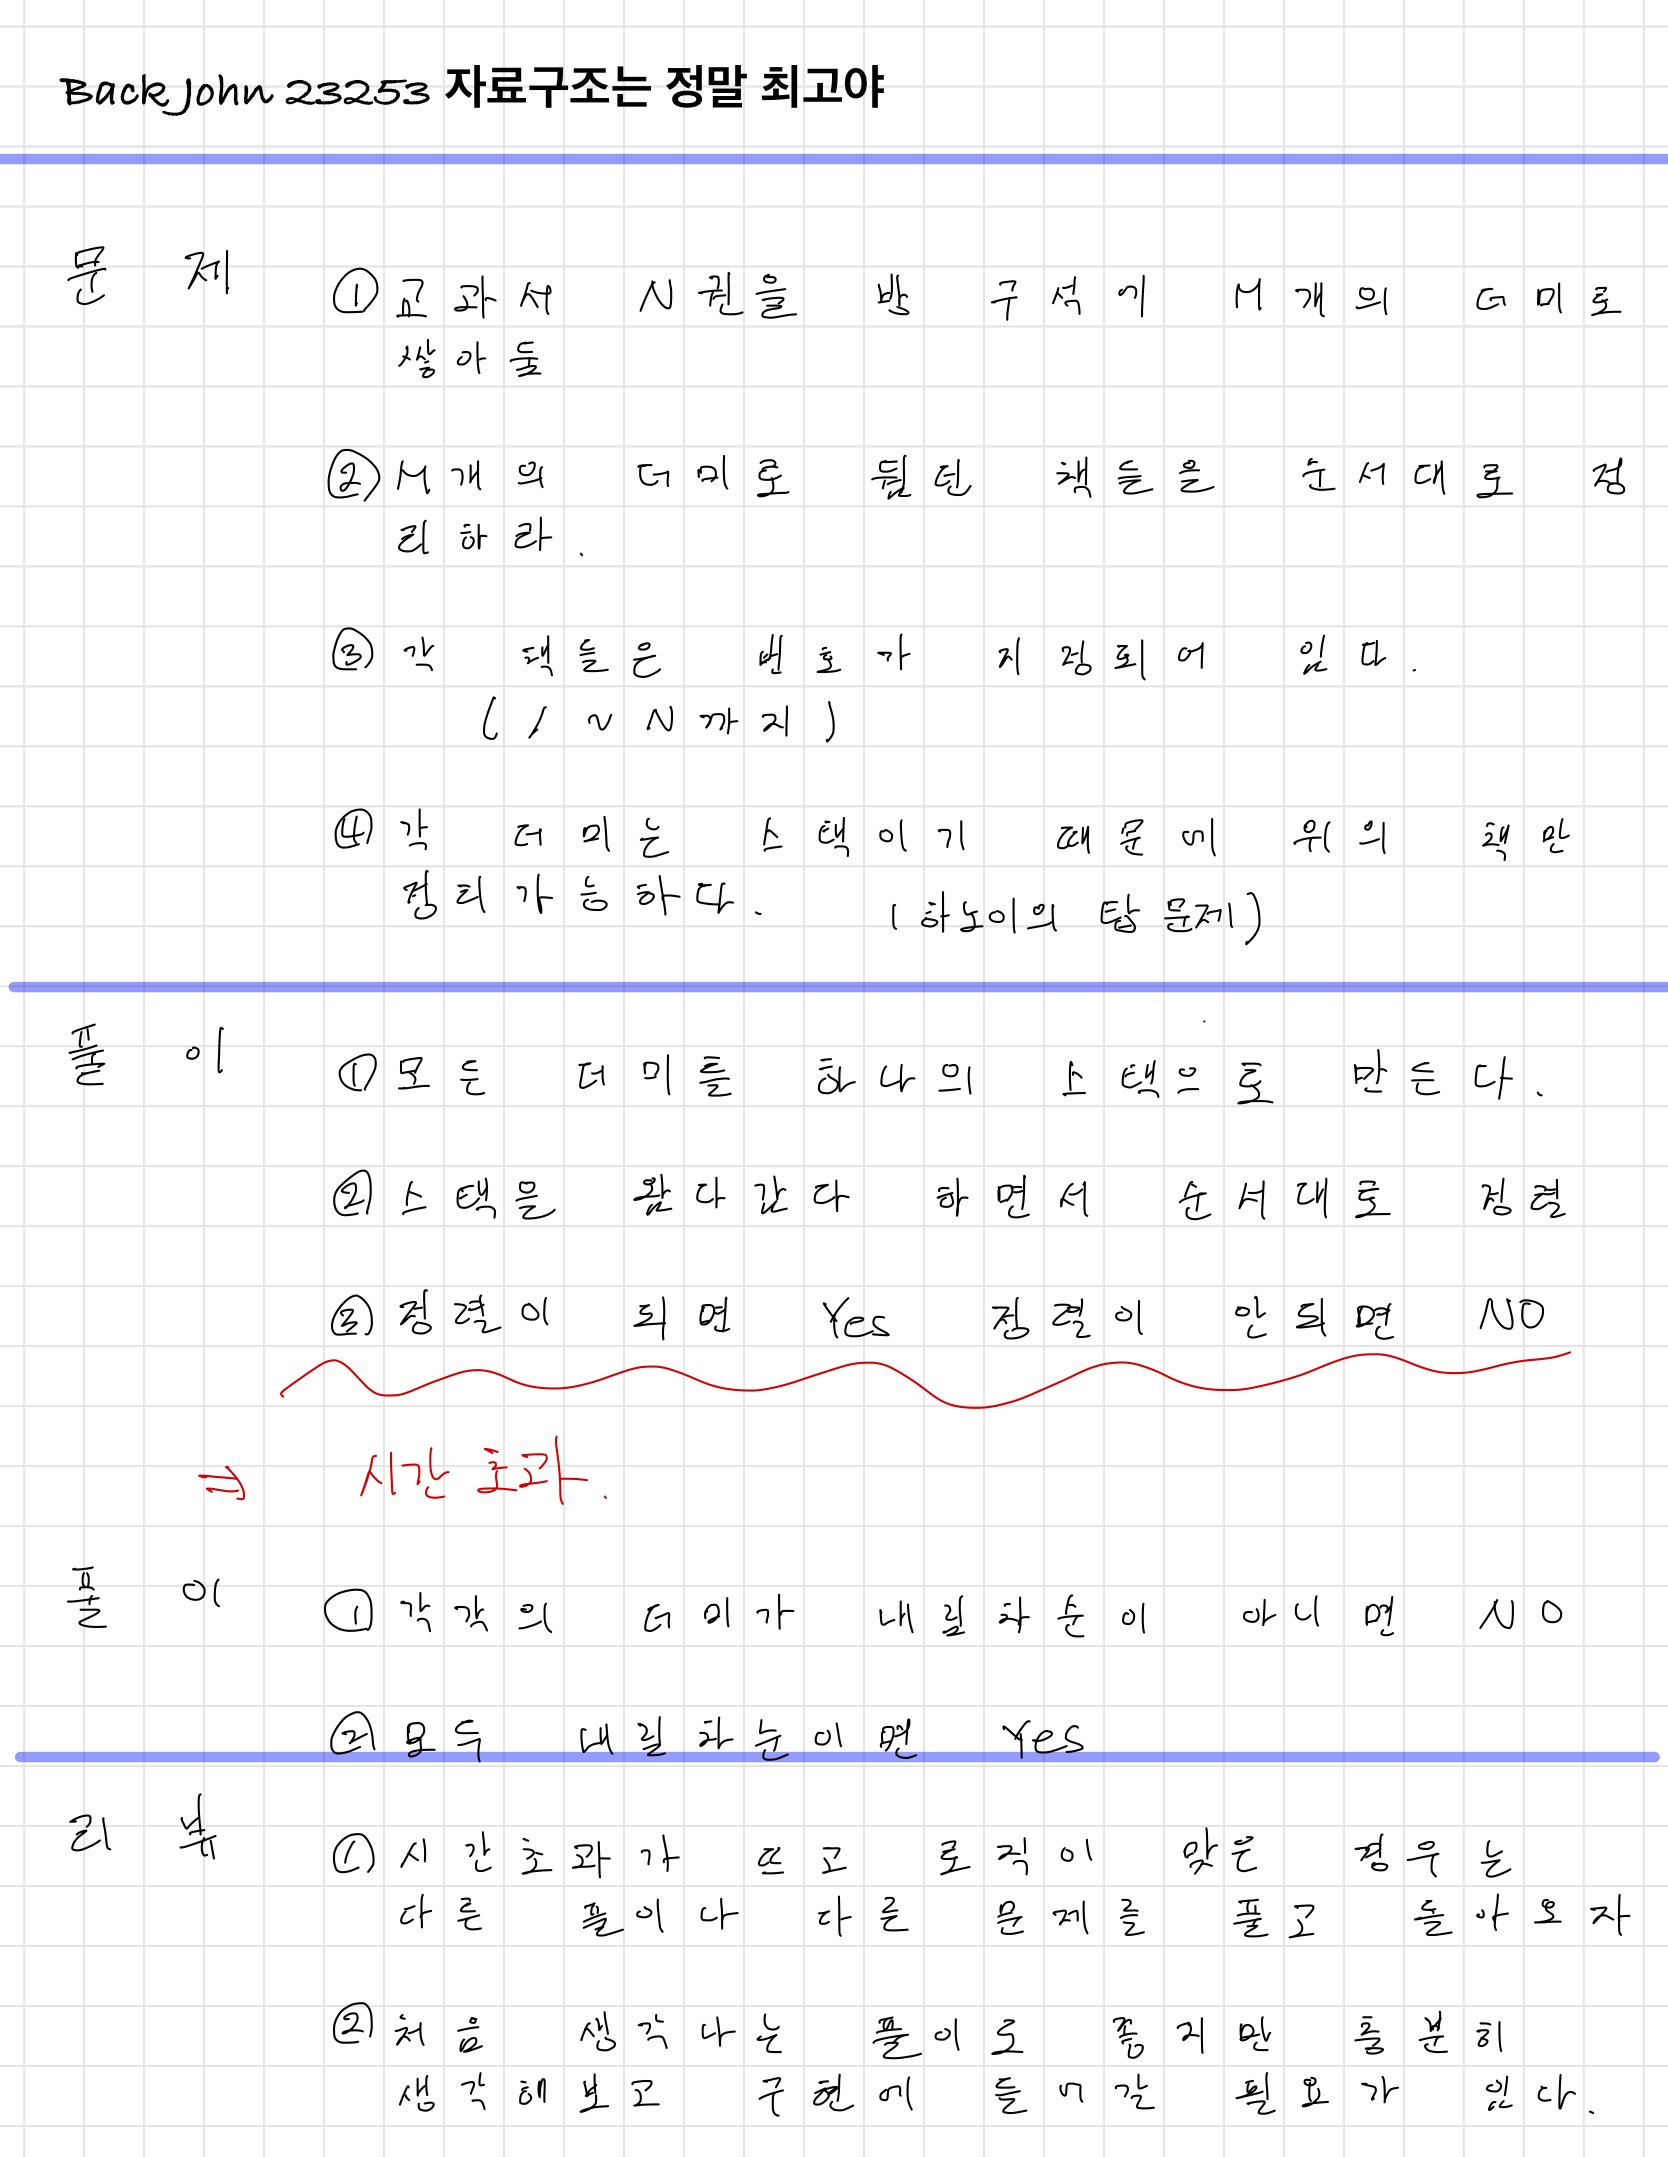 Back John 23253 자료구조는 정말 최고야
문제 ① 교과서 N권을 방 구석에 M개의 더미로
쌓아둠
② M개의 더미로 된 책들을 순서대로 정
리하라.
③ 각 책들은 번호가 지정되어 있다.
( 1 ~ N까지 )
④ 각 더미는 스택이기 때문에 위의 책만
정리가능하다. (하노이의 탑 문제)
풀이 ① 모든 더미를 하나의 스택으로 만든다.
② 스택을 왔다갔다 하면서 순서대로 정렬
③ 정렬이 되면 Yes 정렬이 안되면 NO
⇒ 시간 초과.
풀이 ① 각각의 더미가 내림차순이 아니면 NO
② 모두 내림차순이면 Yes
리뷰 ① 시간초과가 뜨고 로직이 맞은 경우는
다른 풀이나 다른 문제를 풀고 돌아오자
② 처음 생각나는 풀이도 좋지만 충분히
생각해보고 구현에 들어갈 필요가 있다.